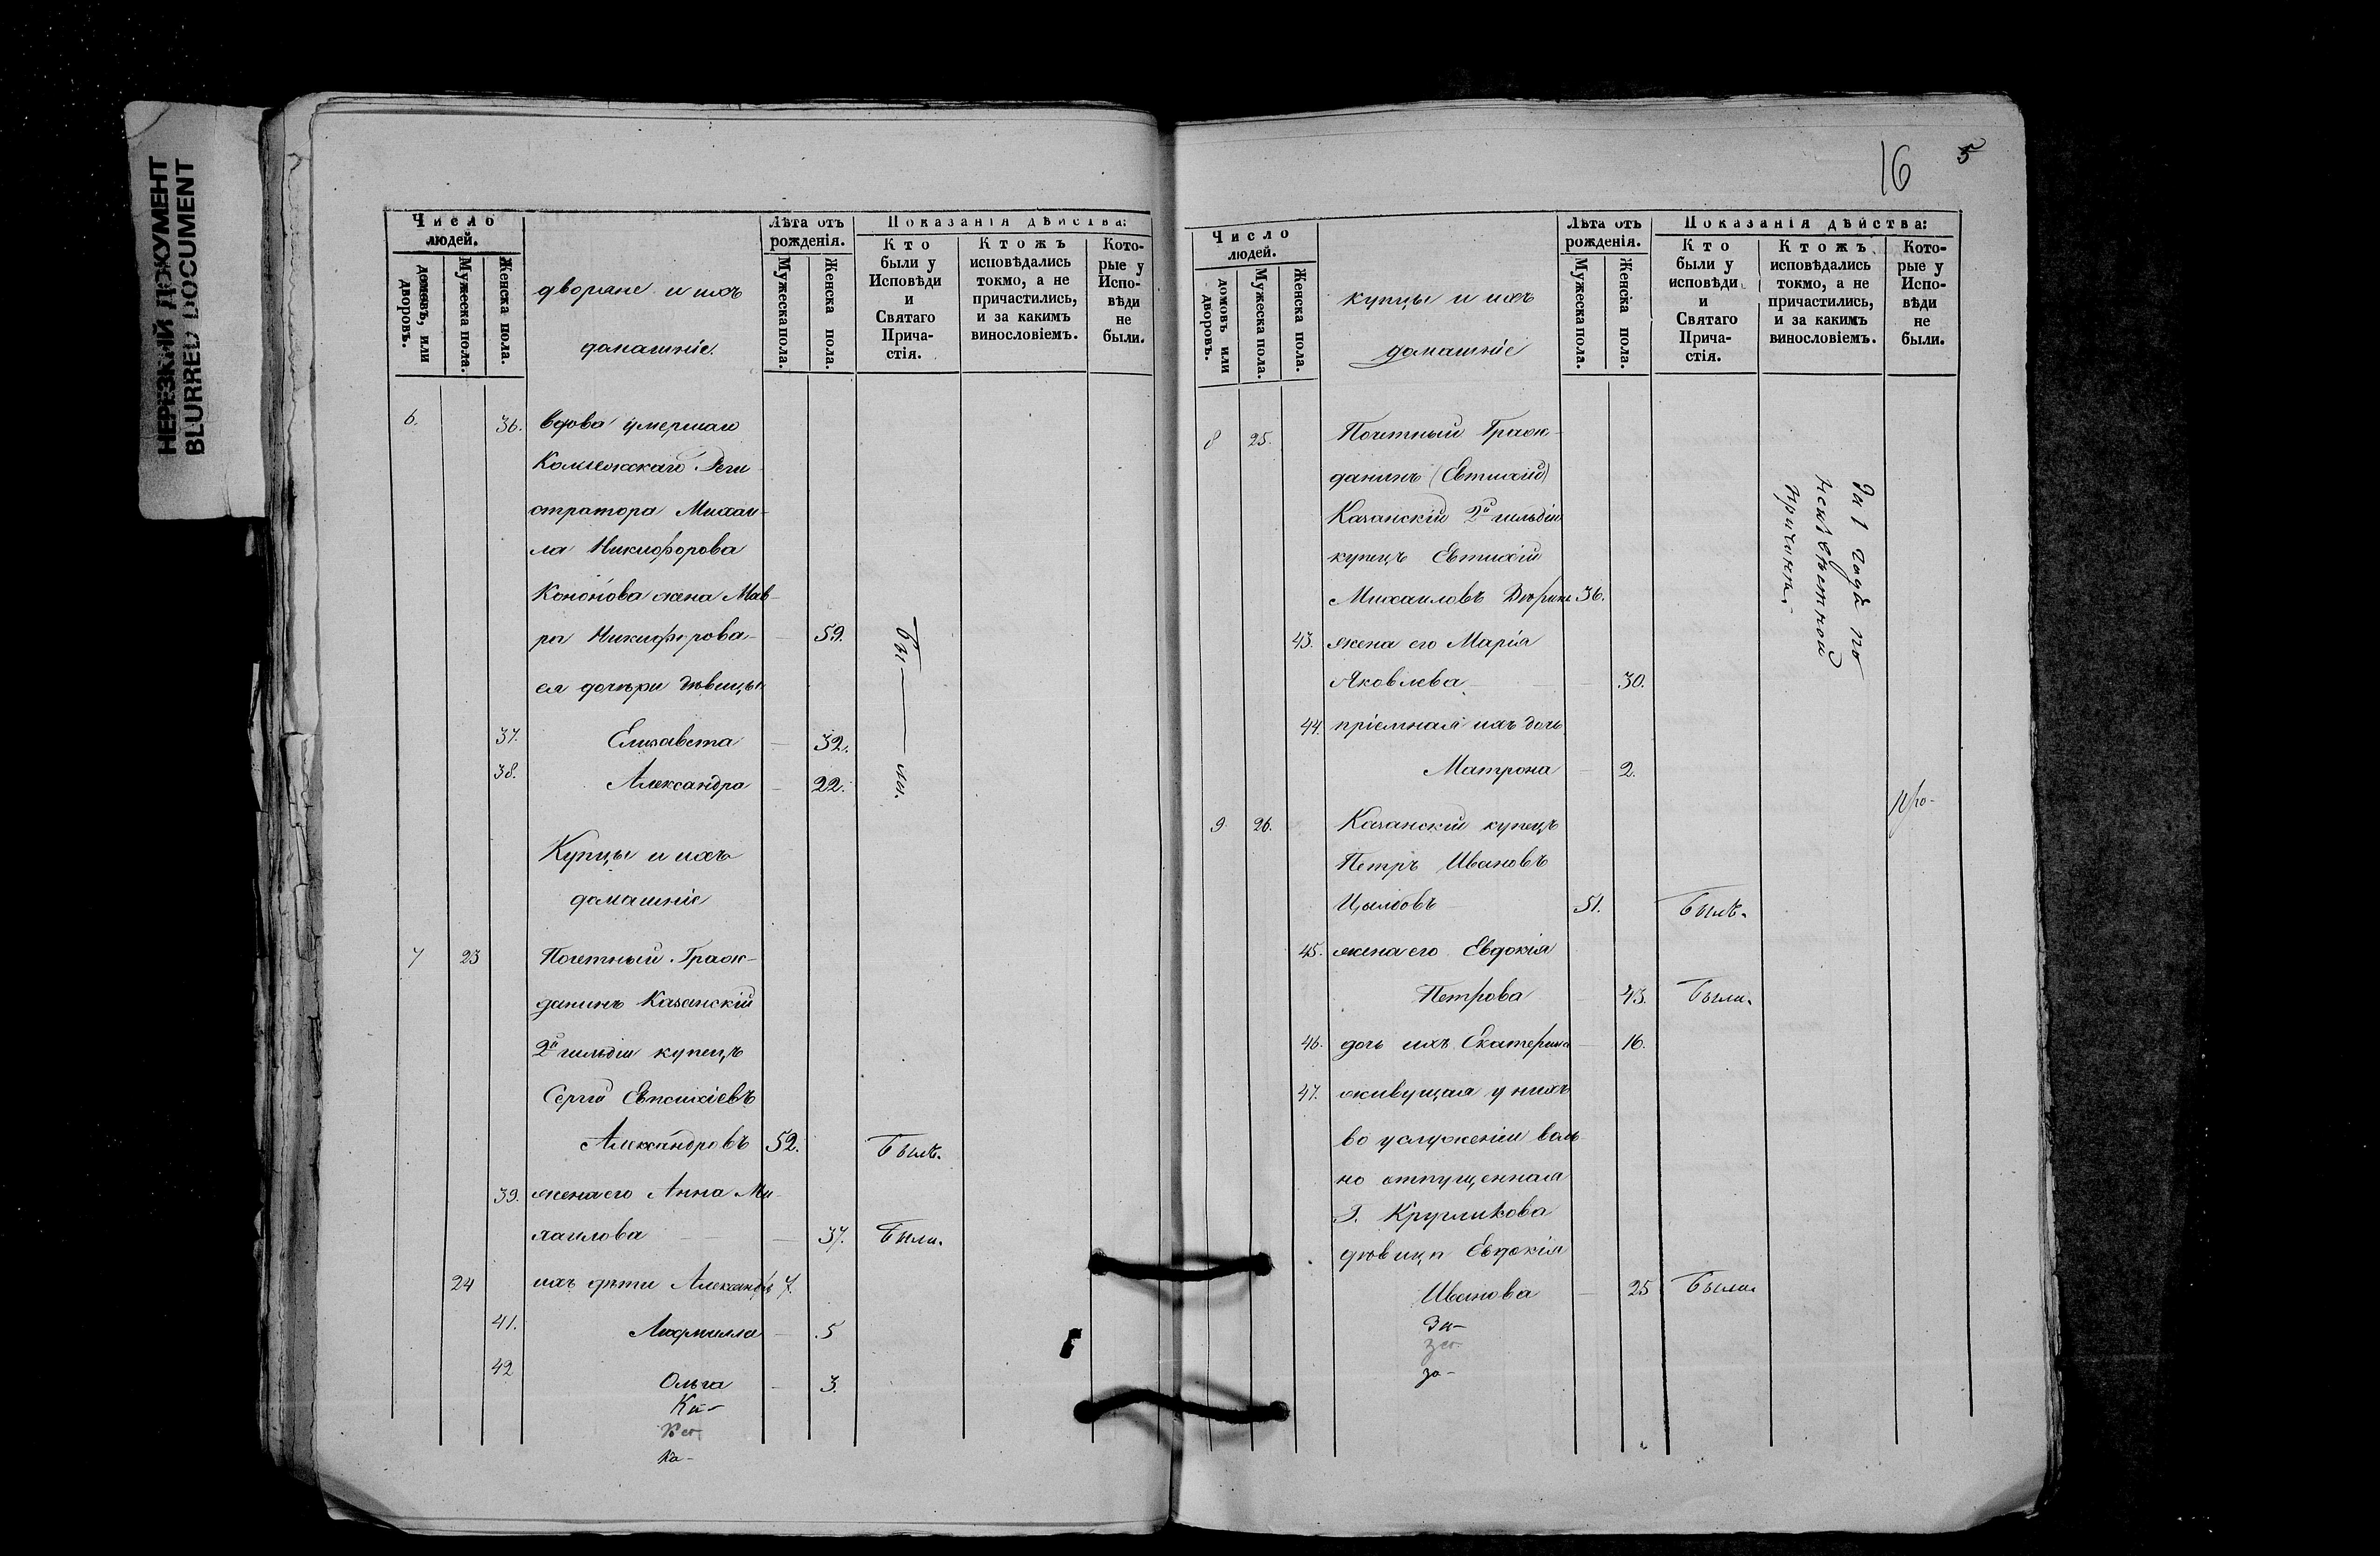 НЕРЕЗКИЙ ДОКУМЕНТ
BLURRED DOCUMENT
Число людей.
домовъ, или дворовъ.
Мужеска пола.
Женска пола.
дворяне и ихъ
домашніе.
Лѣта отъ рожденія.
Мужеска пола.
Женска пола.
Показанія дѣйства:
Кто были у Исповѣди и Святаго Прича-стія.
Ктожъ исповѣдались токмо, а не причастились, и за какимъ винословіемъ.
Кото-рые у Испо-вѣди не были.
6. 36. вдова умершаго
Коллежскаго Реги-
стратора Михаи-
ла Никифорова
Кононова жена Мав-
ра Никифорова 59.
Бы — ли.
ея дочери дѣвицы
37. Елизавета 32.
38. Александра 22.
Купцы и ихъ
домашніе
7 23 Почетный Граж-
данинъ Казанскій
2й гильдіи купецъ
Сергій Евпсихіевъ
Александровъ 52. Былъ.
39. жена его Анна Ми-
хаилова 37. Была.
24 ихъ дѣти Александръ 7.
41. Людмилла 5
42 Ольга 3.
Ка-
на-
16 5
Число людей.
домовъ или дворовъ.
Мужеска пола.
Женска пола.
купцы и ихъ
домашніе
Лѣта отъ рожденія.
Мужеска пола.
Женска пола.
Показанія дѣйства:
Кто были у исповѣди и Святаго Прича-стія.
Ктожъ исповѣдались токмо, а не причастились, и за какимъ винословіемъ.
Кото-рые у Испо-вѣди не были.
8 25. Почетный Граж-
данинъ (Евтихій)
Казанскій 2й гильдіи
купецъ Евтихій
Михаиловъ 36.
43. жена его Марія
Яковлева 30.
по
неизвѣстной
причинѣ.
44. пріемная ихъ дочь
Матрона 2.
9 26. Казанскій купецъ
Петръ Ивановъ
51. Былъ.
45. жена его Евдокія
Петрова 43. Была.
46. дочь ихъ Екатерина 16.
47. живущая у нихъ
во услуженіи воль-
но отпущенная
Г. Кругликова
дѣвица Евдокія
Иванова 25 Была.
За-
за-